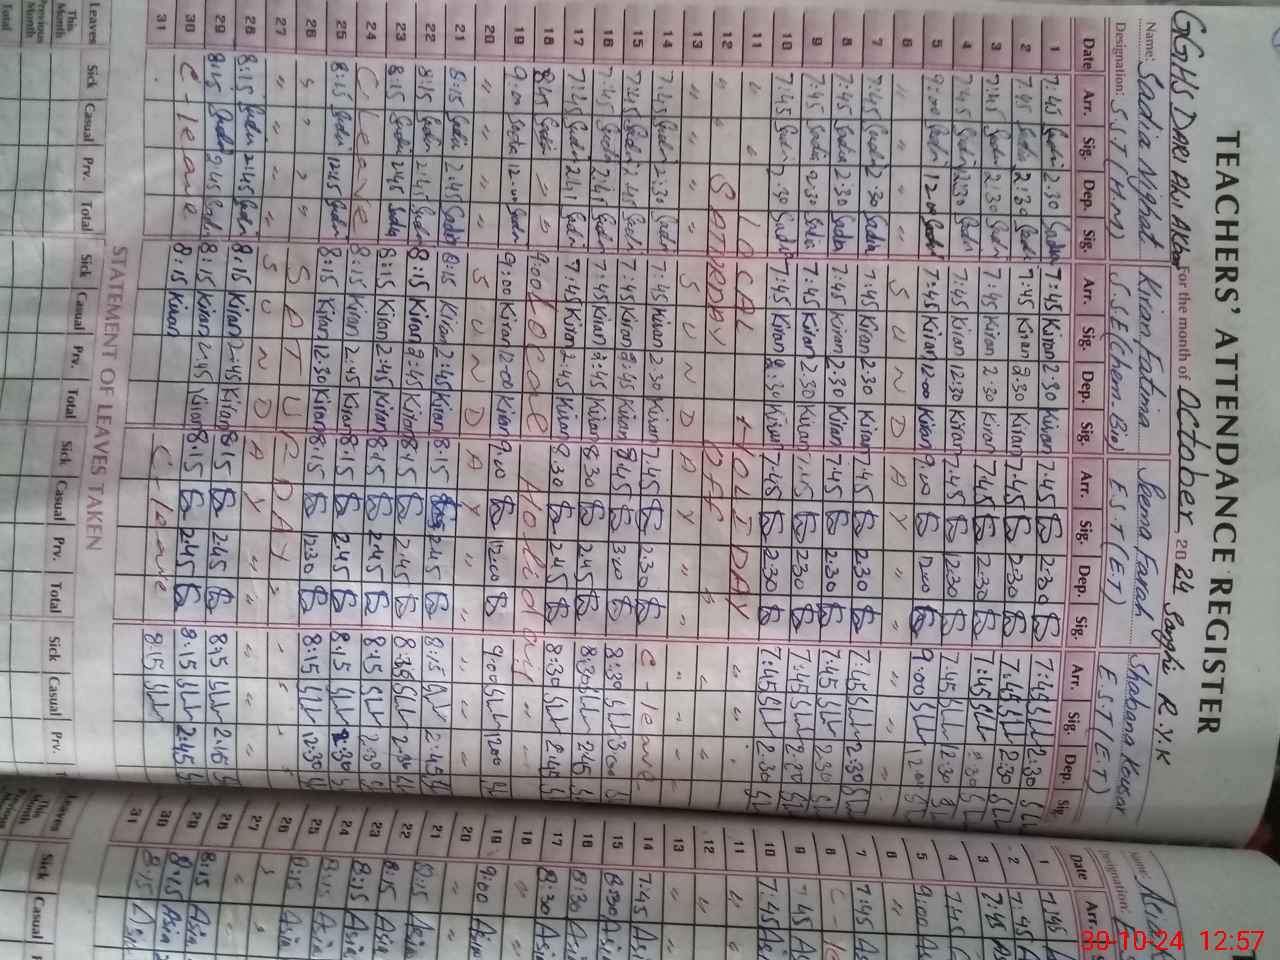 TEACHERS' ATTENDANCE REGISTER
GGHS DARI ALI AKBAR For the month of October 2024 Sanghi R.Y.K
Name: Sadia Nighat Kiran Fatima Seema Farrah Shabana Kousar
Designation: S.S.T (H.M) S.S.E (Chem. Bio) E.S.T (E.T) E.S.T (E.T)
Date Arr. Sig. Dep. Sig. Arr. Sig. Dep. Sig. Arr. Sig. Dep. Sig. Arr. Sig. Dep. Sig.
1 7:45 Sadia 2:30 Sadia 7:45 Kiran 2:30 Kiran 7:45 2:30 7:45 2:30
2 7:45 Sadia 2:30 Sadia 7:45 Kiran 2:30 Kiran 7:45 2:30 7:45 2:30
3 7:45 Sadia 2:30 Sadia 7:45 Kiran 2:30 Kiran 7:45 2:30 7:45
4 7:45 Sadia 12:30 Sadia 7:45 Kiran 12:30 Kiran 7:45 12:30 7:45 12:30
5 9:00 Sadia 12:00 Sadia 7:45 Kiran 12:00 Kiran 9:00 12:00 9:00 12:00
6 " " " " S U N D A Y " " "
7 7:45 Sadia 2:30 Sadia 7:45 Kiran 2:30 Kiran 7:45 2:30 7:45 2:30
8 7:45 Sadia 2:30 Sadia 7:45 Kiran 2:30 Kiran 7:45 2:30 7:45 2:30
9 7:45 Sadia 2:30 Sadia 7:45 Kiran 2:30 Kiran 7:45 2:30 7:45 2:30
10 7:45 Sadia 2:30 Sadia 7:45 Kiran 2:30 Kiran 7:45 2:30 7:45 2:30
11 " " LOCAL HOLIDAY " "
12 " " SATURDAY OFF " "
13 " " " " S U N D A Y " " " "
14 7:45 Sadia 2:30 Sadia 7:45 Kiran 2:30 Kiran 7:45 2:30 C-leave
15 7:45 Sadia 2:45 Sadia 7:45 Kiran 2:45 Kiran 8:45 3:00 8:30 3:00
16 7:45 Sadia 2:41 Sadia 7:45 Kiran 2:45 Kiran 8:30 2:45 8:30 2:45
17 7:45 Sadia 2:41 Sadia 7:45 Kiran 2:45 Kiran 8:30 2:45 8:30 2:45
18 8:45 Sadia " " 9:00 Local Holiday " "
19 9:00 Sadia 12:00 Sadia 9:00 Kiran 12:00 Kiran 9:00 12:00 9:00 1200
20 " " " " S U N D A Y " " "
21 8:15 Sadia 2:45 Sadia 8:15 Kiran 2:45 Kiran 8:15 2:45 8:15 2:45
22 8:15 Sadia 2:41 Sadia 8:15 Kiran 2:45 Kiran 8:15 2:45 8:30 2:30
23 8:15 Sadia 2:45 Sadia 8:15 Kiran 2:45 Kiran 8:15 2:45 8:15
24 C-leave 8:15 Kiran 2:45 Kiran 8:15 2:45 8:15 2:30
25 8:15 Sadia 12:45 Sadia 8:15 Kiran 12:30 Kiran 8:15 12:30 8:15 12:30
26 " " " " S A T U R D A Y " " "
27 " " " " S U N D A Y " " "
28 8:15 Sadia 2:45 Sadia 8:15 Kiran 2:45 Kiran 8:15 2:45 8:15 2:45
29 8:15 Sadia 2:45 Sadia 8:15 Kiran 2:45 Kiran 8:15 2:45 8:15 2:45
30 C-leave 8:15 Kiran C-leave 8:15 2:45
31
STATEMENT OF LEAVES TAKEN
Leaves Sick Casual Prv. Total Sick Casual Prv. Total Sick Casual Prv. Total Sick Casual Prv.
This Month
Previous Month
Total
Name:
Designation:
Date Arr.
1 7:45
2 7:45
3 7:45
4 7:45
5 9:00
6 "
7 7:45
8 C-le
9 7:45
10 7:45
11 "
12 "
13 "
14 7:45 Asia
15 8:30 Asia
16 8:30 Asia
17 8:30 Asia
18 "
19 9:00 Asia
20 "
21 8:15 Asia
22 8:15 Asia
23 8:15 Asia
24 8:15 Asia
25 8:15 Asia
26
27
28
29 8:15 Asia
30 8:15 Asia
31 8:15 Asia
Leaves Sick Casual
This Month
30-10-24 12:57